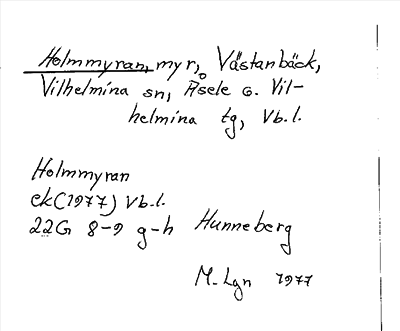 Holmmyran, myr, Västanbäck,
Vilhelmina sn, Åsele o. Vil-
helmina tg, Vb.l.
Holmmyran
ek (1977) Vb.l.
22G 8-9 g-h Hunneberg
M. Lgn 1977